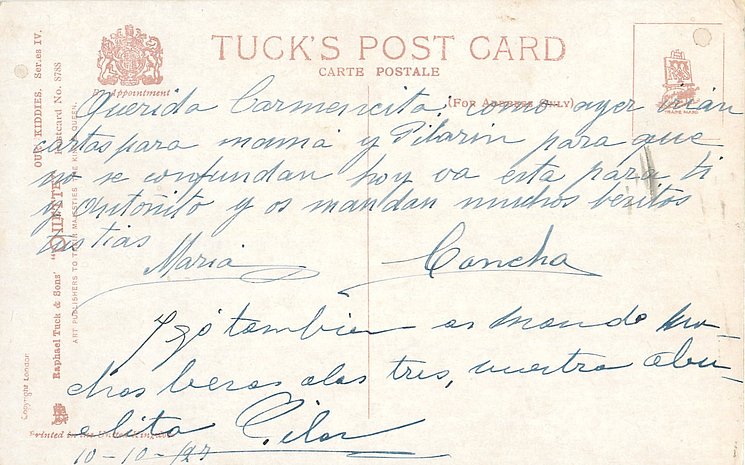 TUCK'S POST CARD
CARTE POSTALE
By Appointment
(FOR ADDRESS ONLY)
TRADE MARK
Querida Carmencita: como ayer irían
cartas para mamá y Pilarin para que
no se confundan hoy va esta para ti
y Antoñito y os mandan muchos besitos
tus tias
Maria Concha
Y yo tambien os mando mu-
chos besos a los tres, vuestra abu-
elita Pilar
10-10-927
Copyright London
Raphael Tuck & Sons' "OILETTE"
OUR KIDDIES. Series IV.
Postcard No. 8788
ART PUBLISHERS TO THEIR MAJESTIES THE KING & QUEEN.
Printed in the United Kingdom